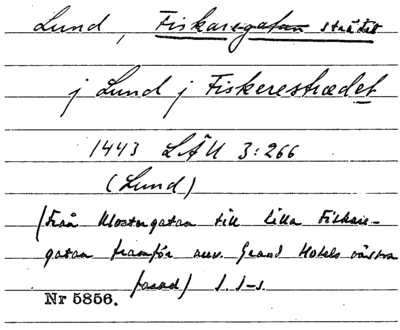 Lund, Fiskaregatan strätet
j Lund j Fiskerestrædet
1443 LÄU 3:266
(Lund)
(Från Klostergatan till Lilla Fiskare-
gatan framför nuv. Grand Hotels västra
fasad) I. I-s.
Nr 5856.